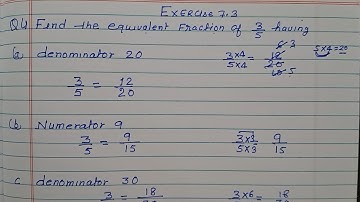 EXERCISE 7.3
Q4 Find the equivalent fraction of 3/5 having
(a) denominator 20
3×4/5×4 = 12/20
5×4=20
3/5 = 12/20
(b) Numerator 9
3/5 = 9/15
3×3/5×3 9/15
c denominator 30
3 = 18
3×6 = 18